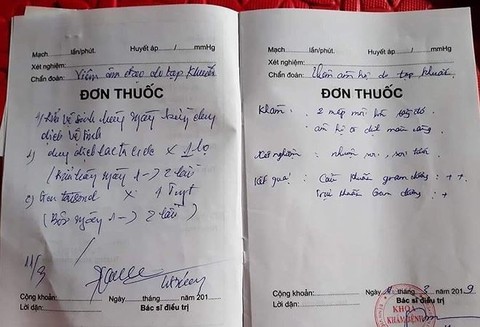 Mạch..........lần/phút. Huyết áp......./.......mmHg
Xét nghiệm:
Chẩn đoán: Viêm âm đạo do tạp khuẩn
ĐƠN THUỐC
1) vệ sinh hàng ngày bằng dung
dịch vệ sinh
dung dịch lactacide x 1 lọ
ngày 1 -> 2 lần)
x 1 Tuýp
(Bôi ngày 1 -> 2 lần)
11/3
Cộng khoản:
Lời dặn:
Ngày tháng năm 201
Bác sĩ điều trị
Mạch..........lần/phút. Huyết áp......./.......mmHg
Xét nghiệm:
Chẩn đoán: Viêm âm hộ do tạp khuẩn
ĐƠN THUỐC
Khám: 2 mép môi lớn
âm hộ
Xét nghiệm: nhuộm soi, soi tươi
Kết quả: Cầu khuẩn gram dương: ++
Trực khuẩn Gam dương: +
Cộng khoản:
Lời dặn:
Ngày 11 tháng 3 năm 2019
Bác sĩ điều trị
KHOA
KHÁM BỆNH